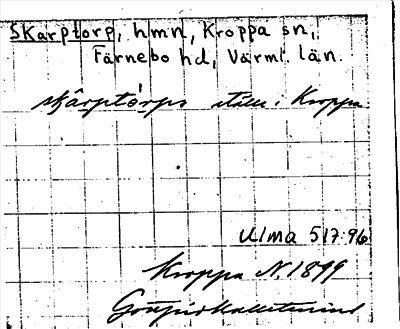 Skarptorp, hmn, Kroppa sn,
Färnebo hd, Värml. län.
skarptorps i Kroppa
Ulma 517:96
Kroppa N. 1899